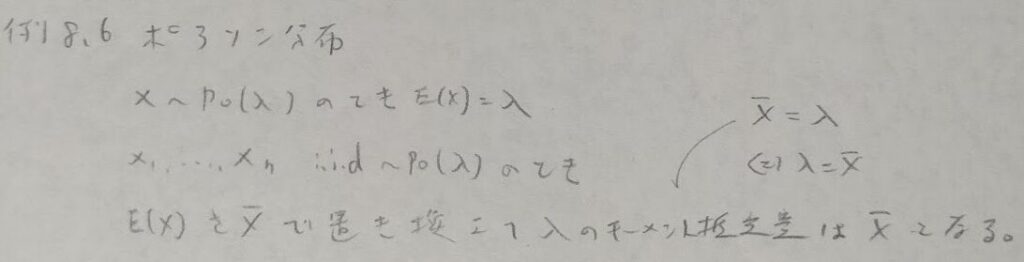 例8.6 ポアソン分布
X ~ Po(λ) のとき E(X) = λ
X̄ = λ
X₁, ..., Xₙ i.i.d ~ Po(λ) のとき
⇔ λ = X̄
E(X) を X̄ で置き換えて λ のモーメント推定量は X̄ となる。